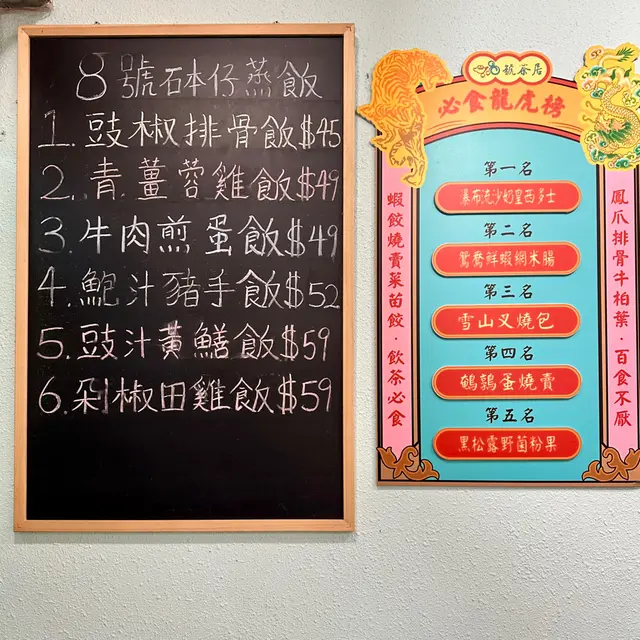 8號砵仔蒸飯
1.豉椒排骨飯$45
2.青薑蓉雞飯$49
3.牛肉煎蛋飯$49
4.鮑汁豬手飯$52
5.豉汁黃鱔飯$59
6.剁椒田雞飯$59
8號茶居
必食龍虎榜
第一名
瀑布流沙奶皇西多士
第二名
鴛鴦鮮蝦網米腸
第三名
雪山叉燒包
第四名
鵪鶉蛋燒賣
第五名
黑松露野菌粉果
蝦餃燒賣菜苗餃·飲茶必食
鳳爪排骨牛柏葉·百食不厭